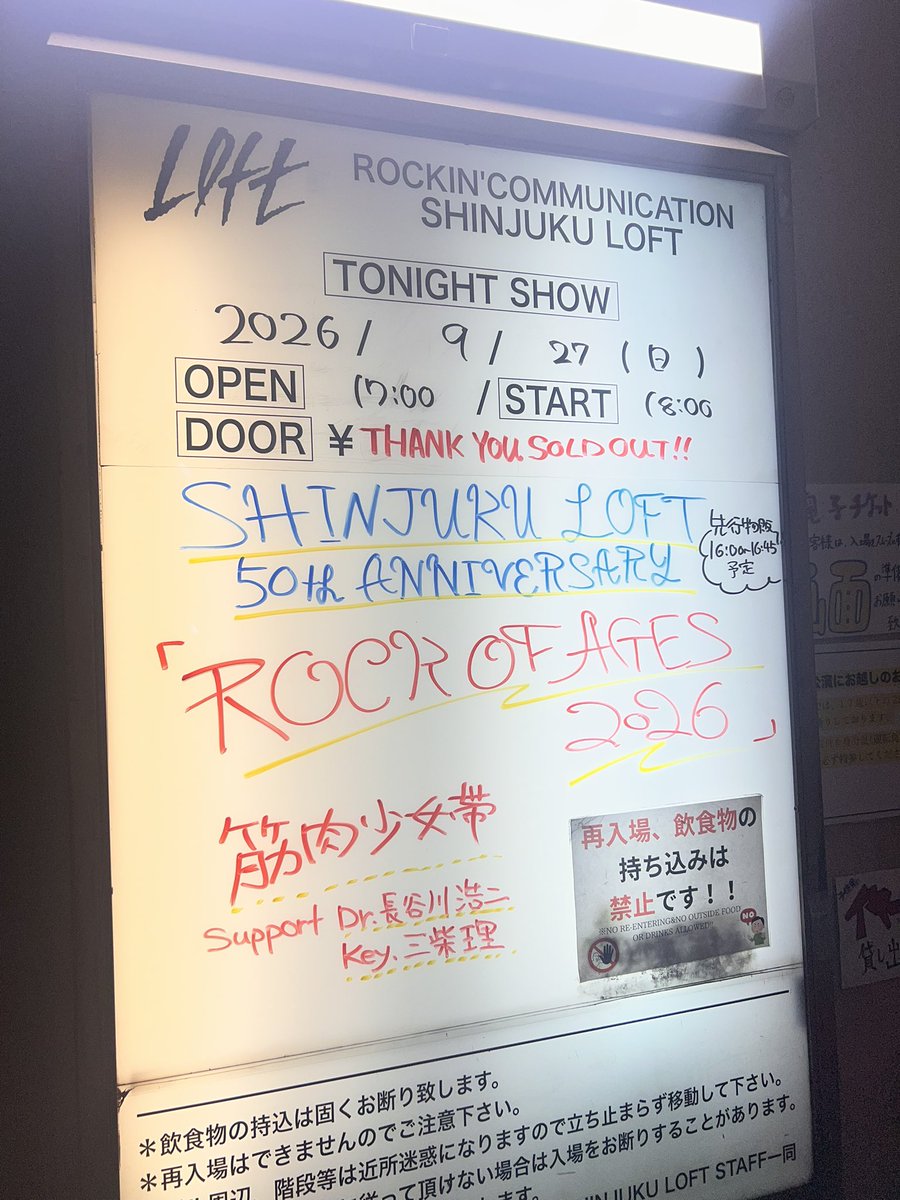 Loft
ROCKIN'COMMUNICATION
SHINJUKU LOFT
TONIGHT SHOW
2026 / 9 / 27 (日)
OPEN 17:00 / START 18:00
DOOR ¥ THANK YOU SOLD OUT!!
SHINJUKU LOFT
50th ANNIVERSARY
先行物販
16:00~16:45
予定
「ROCK OF AGES
2026」
筋肉少女帯
Support Dr.長谷川浩二
Key.三柴理
再入場、飲食物の
持ち込みは
禁止です!!
※NO RE-ENTERING&NO OUTSIDE FOOD
OR DRINKS ALLOWED!!
NO
*飲食物の持込は固くお断り致します。
*再入場はできませんのでご注意下さい。
周辺、階段等は近所迷惑になりますので立ち止まらず移動して下さい。
従って頂けない場合は入場をお断りすることがあります。
SHINJUKU LOFT STAFF一同
電子チケット
画面
の準備
公演にお越しのお
貸し出